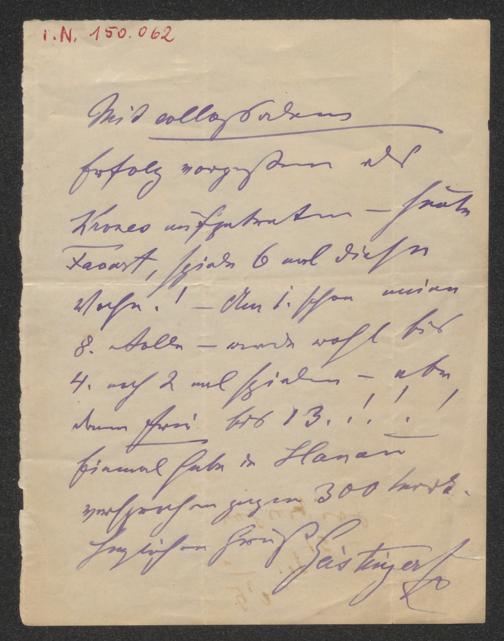 I.N. 150.062
Mit collossalem
Erfolg vorgestern als
aufgetreten — heute
Favart, spiele 6 mal diese
Woche! — Am 1. schon meine
8. Rolle — werde wohl bis
4. noch 2 mal spielen — aber
dann frei bis 13.!!!!
Einmal habe in Hanau
versprochen gegen 300 Mark.
Herzlichen Gruß Geistinger